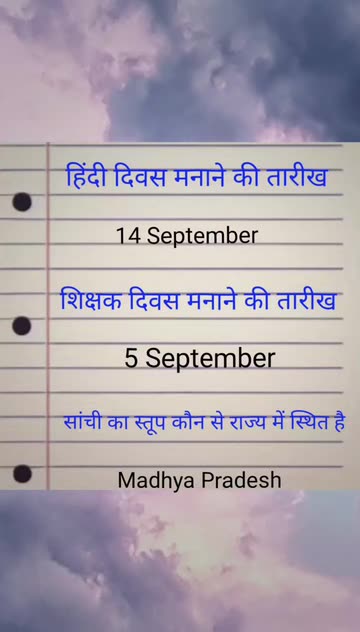 हिंदी दिवस मनाने की तारीख
14 September
शिक्षक दिवस मनाने की तारीख
5 September
सांची का स्तूप कौन से राज्य में स्थित है
Madhya Pradesh